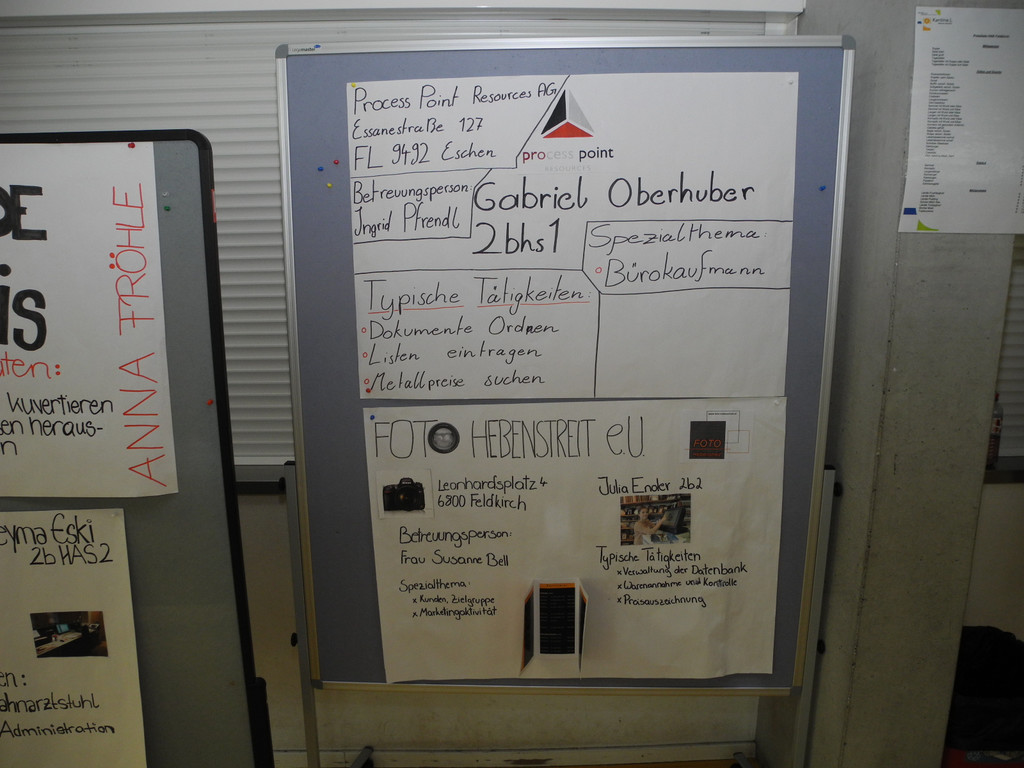 Process Point Resources AG
Essanestraße 127
FL 9492 Eschen
process point
RESOURCES
Betreuungsperson:
Ingrid Pfrendl
Gabriel Oberhuber
2bhs1
Spezialthema:
Bürokaufmann
Typische Tätigkeiten:
Dokumente Ordnen
Listen eintragen
Metallpreise suchen
FOTO HEBENSTREIT e.U.
FOTO
Leonhardsplatz 4
6800 Feldkirch
Julia Ender 2b2
Betreuungsperson:
Frau Susanne Bell
Spezialthema:
x Kunden, Zielgruppe
x Marketingaktivität
Typische Tätigkeiten
x Verwaltung der Datenbank
x Warenannahme und Kontrolle
x Preisauszeichnung
ANNA FRÖHLE
is
ten:
kuvertieren
en heraus-
n
eyma Eski
2b HAS2
en:
ahnarztstuhl
Administration